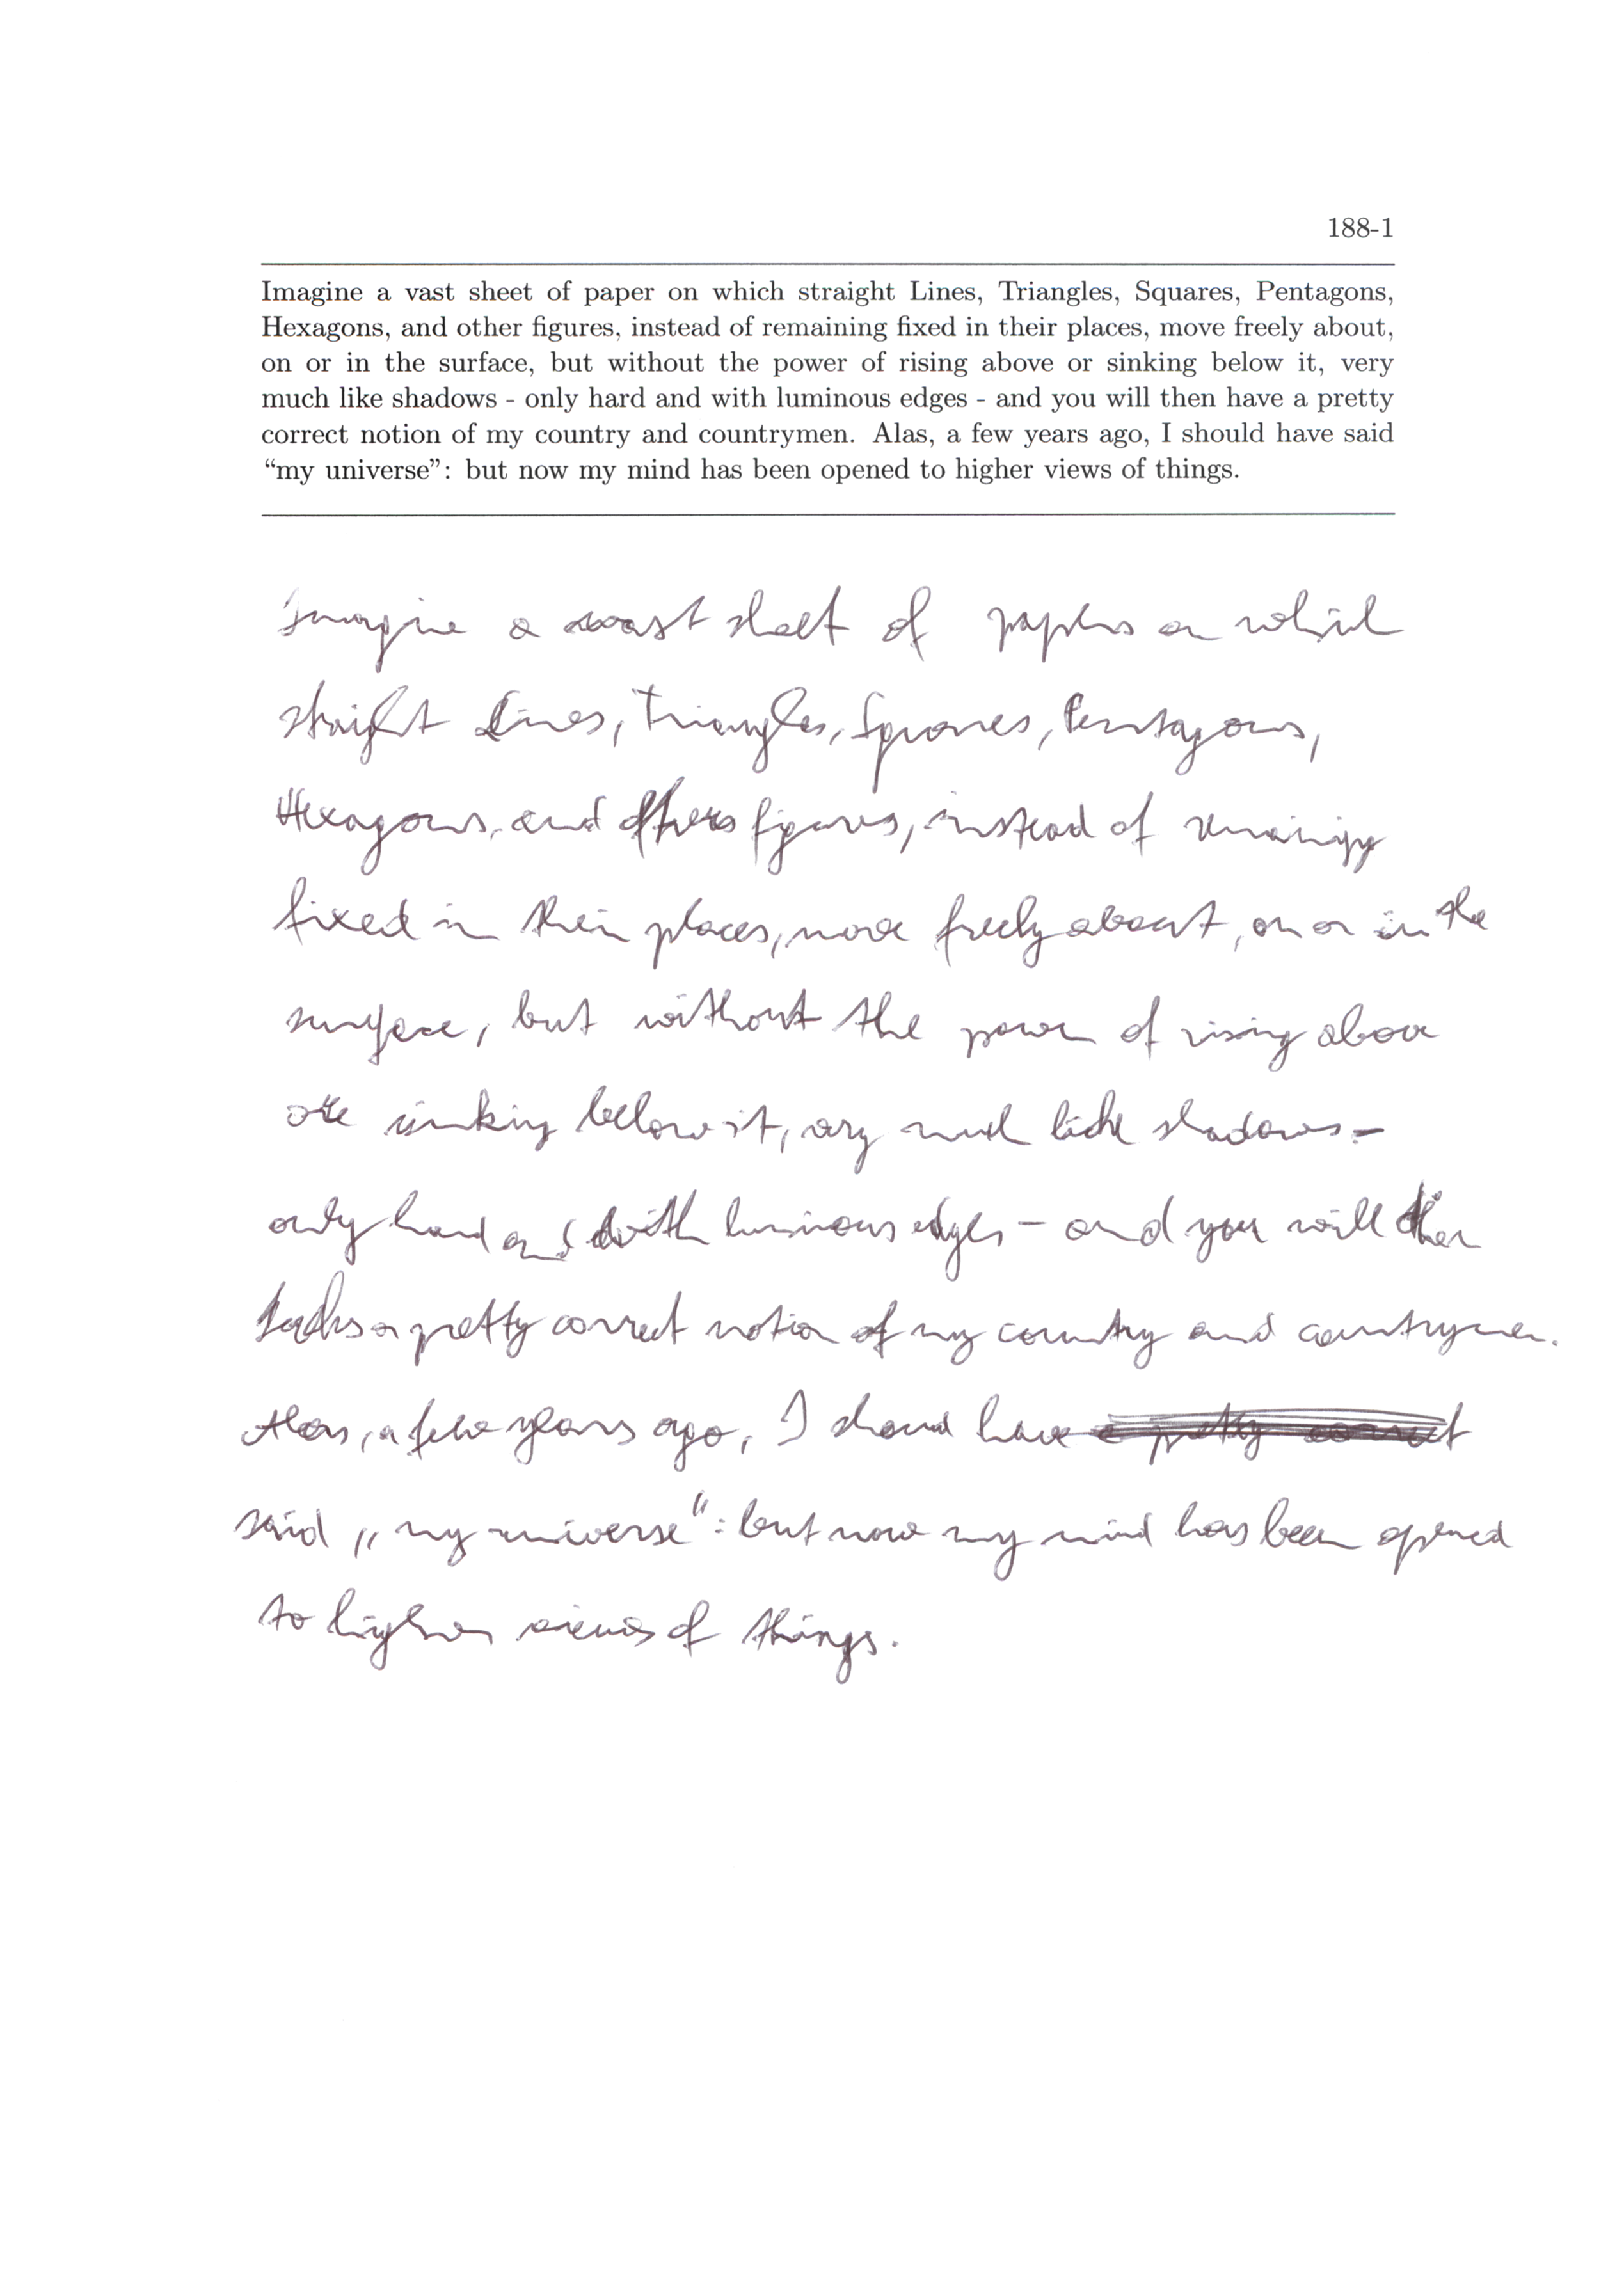 188-1
Imagine a vast sheet of paper on which straight Lines, Triangles, Squares, Pentagons,
Hexagons, and other figures, instead of remaining fixed in their places, move freely about,
on or in the surface, but without the power of rising above or sinking below it, very
much like shadows - only hard and with luminous edges - and you will then have a pretty
correct notion of my country and countrymen. Alas, a few years ago, I should have said
“my universe”: but now my mind has been opened to higher views of things.
Imagine a vast sheet of paper on which
straight Lines, Triangles, Squares, Pentagons,
Hexagons, and other figures, instead of
fixed in their places, move freely about, on or in the
surface, but without the power of rising above
or sinking below it, very much like shadows -
only hard and with luminous edges - and you will then
a pretty correct notion of my country and countrymen.
Alas, a few years ago, I should have
said „my universe“: but now my mind has been opened
to higher views of things.